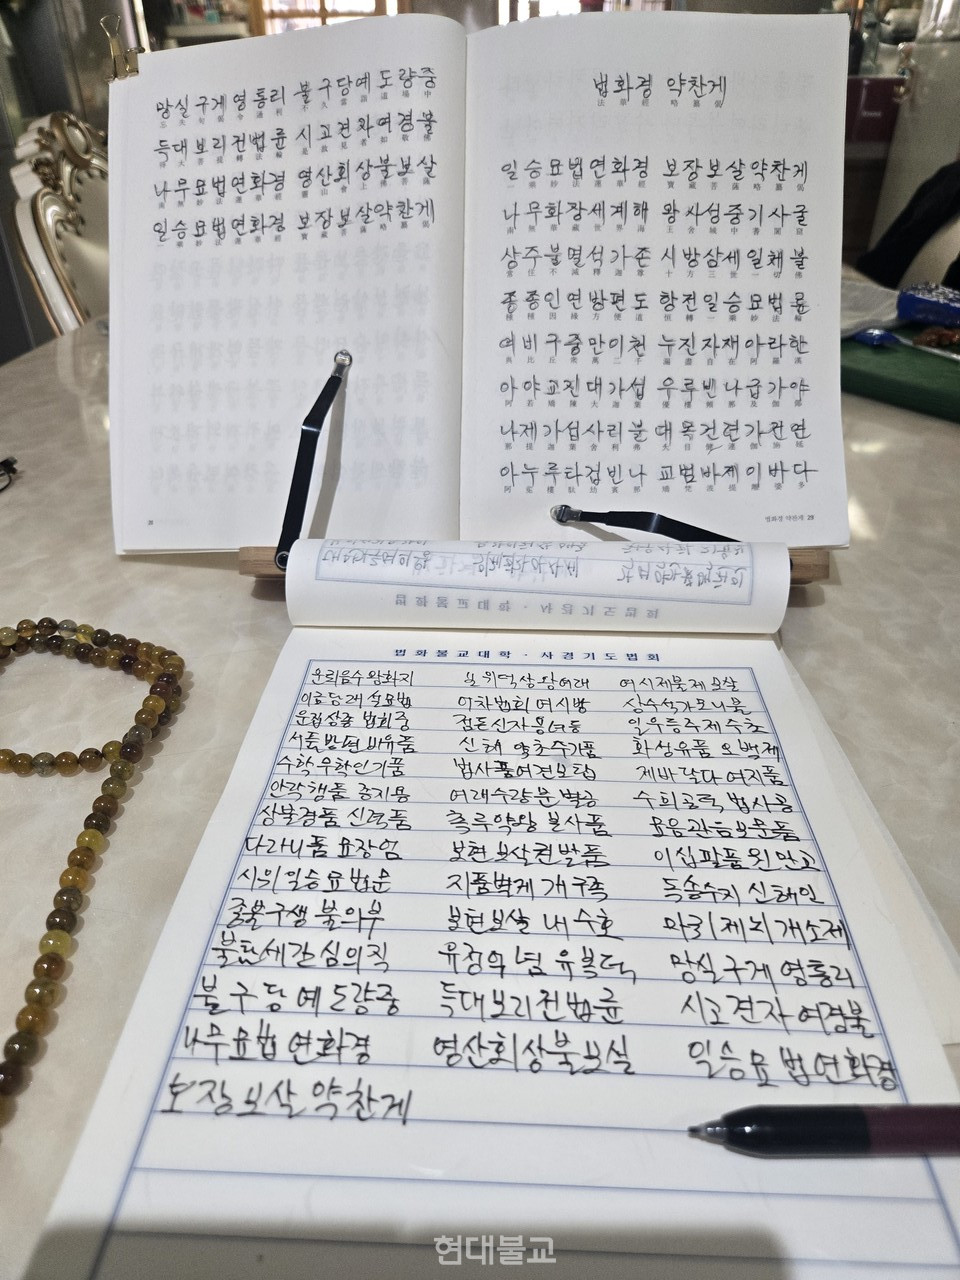 망실구게영통리 불구당예도량중
득대보리전법륜 시고견자여경불
나무묘법연화경 영산회상불보살
일승묘법연화경 보장보살약찬게
법화경 약찬게
法華經 略纂偈
일승묘법연화경 보장보살약찬게
一乘妙法蓮華經 寶藏菩薩略纂偈
나무화장세계해 왕사성중기사굴
南無華藏世界海 王舍城中耆闍窟
상주불멸석가존 시방삼세일체불
常住不滅釋迦尊 十方三世一切佛
종종인연방편도 항전일승묘법륜
種種因緣方便道 恒轉一乘妙法輪
여비구중만이천 누진자재아라한
與比丘衆萬二千 漏盡自在阿羅漢
아야교진대가섭 우루빈나급가야
阿若憍陳大迦葉 優樓頻那及伽耶
나제가섭사리불 대목건련가전연
那提迦葉舍利弗 大目犍連迦旃延
아누루타겁빈나 교범바제이바다
阿㝹樓馱劫賓那 憍梵波提離婆多
법화경 약찬게 29
법화불교대학 · 사경기도법회
운뢰음수왕화지 여시제불제보살
이차법회여시방 상수석가모니불
운집상종법회중 점돈신자용녀등 일우등주제수초
서품방편비유품 신해약초수기품 화성유품오백제
수학무학인기품 법사품여견보탑 제바달다여지품
안락행품종지용 여래수량분별공 수희공덕법사공
상불경품신력품 촉루약왕본사품 묘음관음보문품
다라니품묘장엄 보현보살권발품 이십팔품원만교
시위일승묘법문 지품별게개구족 독송수지신해인
종불구생불의부 보현보살내수호 마귀제뇌개소제
불탐세간심의직 유정억념유복덕 망실구게영통리
불구당예도량중 득대보리전법륜 시고견자여경불
나무묘법연화경 영산회상불보살 일승묘법연화경
보장보살약찬게
현대불교